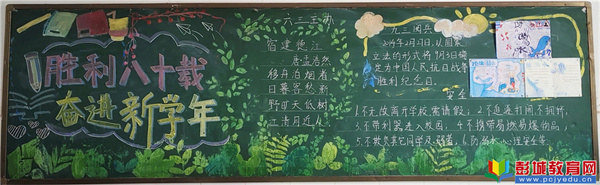 胜利八十载
奋进新学年
六三王办
宿建德江
唐孟浩然
移舟泊烟渚
日暮客愁新
野旷天低树
江清月近人
九三阅兵
2014年2月27日,以国家
立法的形式将9月3日确
定为中国人民抗日战争
胜利纪念日。
1.不无故离开学校,需请假; 2.不追逐打闹、不拥挤;
3.不带利器进入校园; 4.不携带易燃易爆物品;
彭城教育网
www.pcjyedu.cn